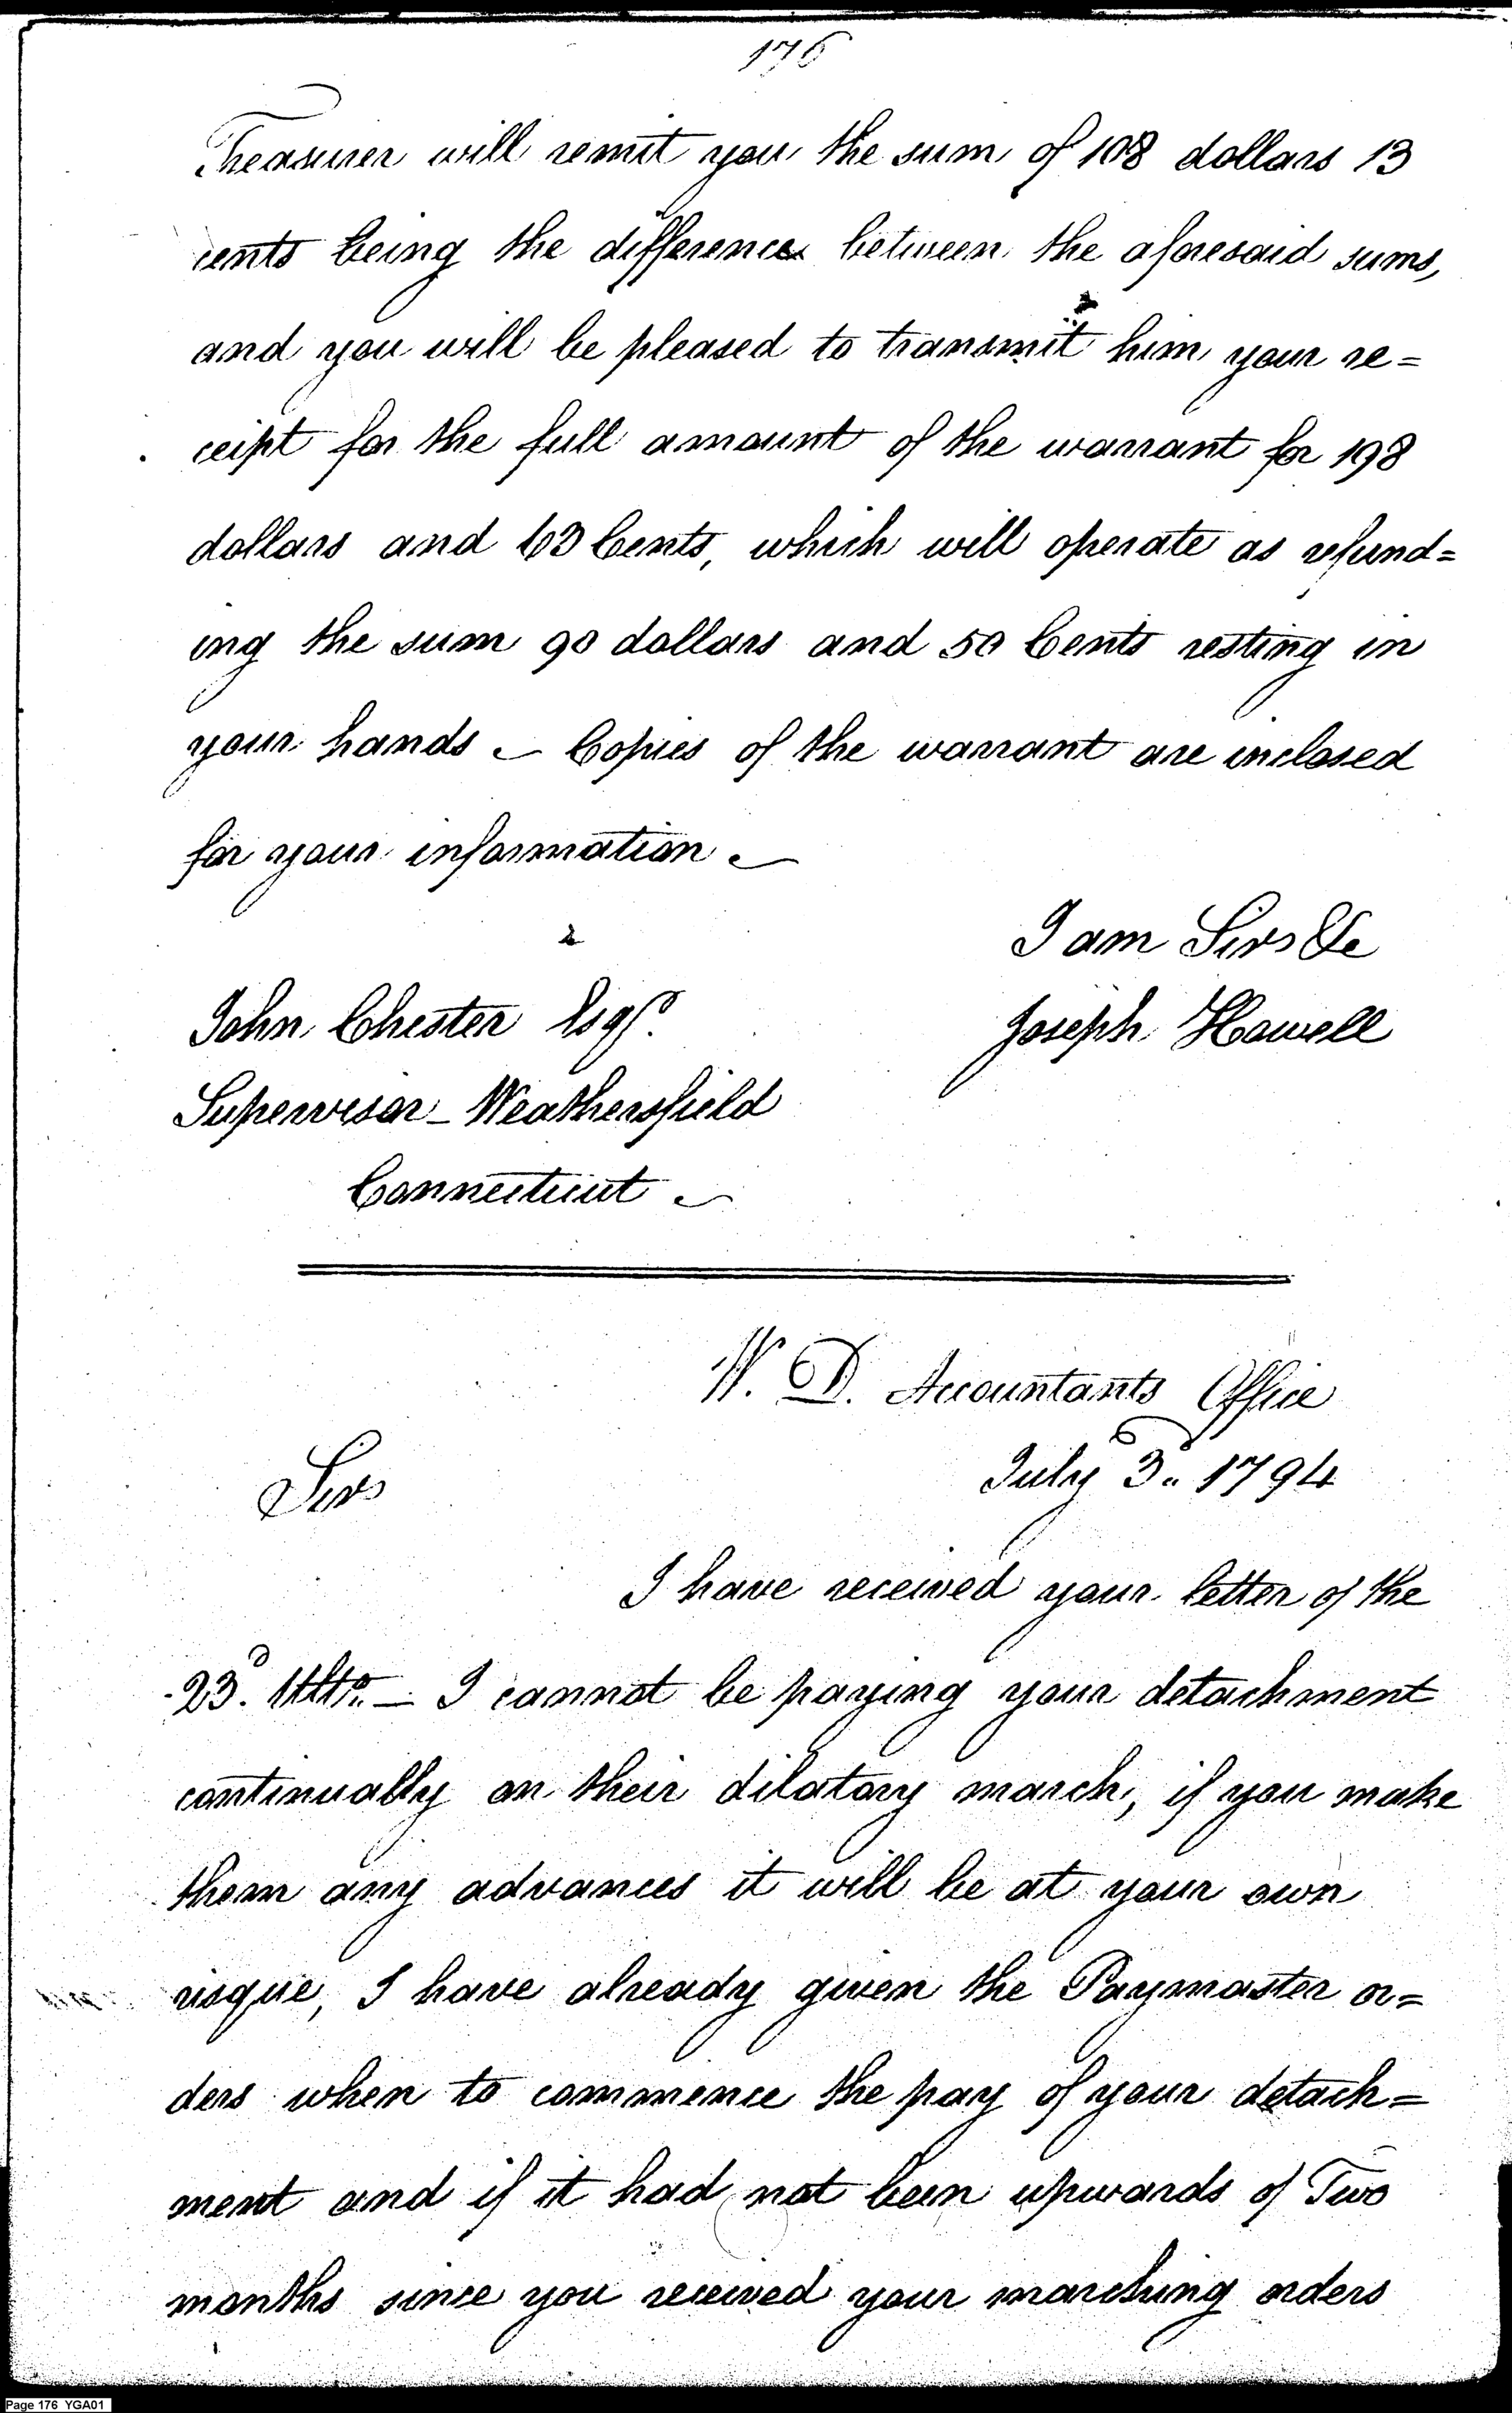 176
Treasurer will remit you the sum of 108 dollars 13
cents being the difference between the aforesaid sums,
and you will be pleased to transmit him your re=
ceipt for the full amount of the warrant for 198
dollars and 63 Cents, which will operate as refund=
ing the sum 90 dollars and 50 Cents resting in
your hands – Copies of the warrant are inclosed
for your information –
I am Sir &c
John Chester Esqr.
Joseph Howell
Supervisor – Weathersfield
Connecticut –
W. D. Accountants Office
July 3d. 1794
Sir
I have received your letter of the
23d. Ulto. – I cannot be paying your detachment
continually on their dilatory march, if you make
them any advances it will be at your own
risque, I have already given the Paymaster or=
ders when to commence the pay of your detach=
ment and if it had not been upwards of Two
months since you received your marching orders
Page 176 YGA01